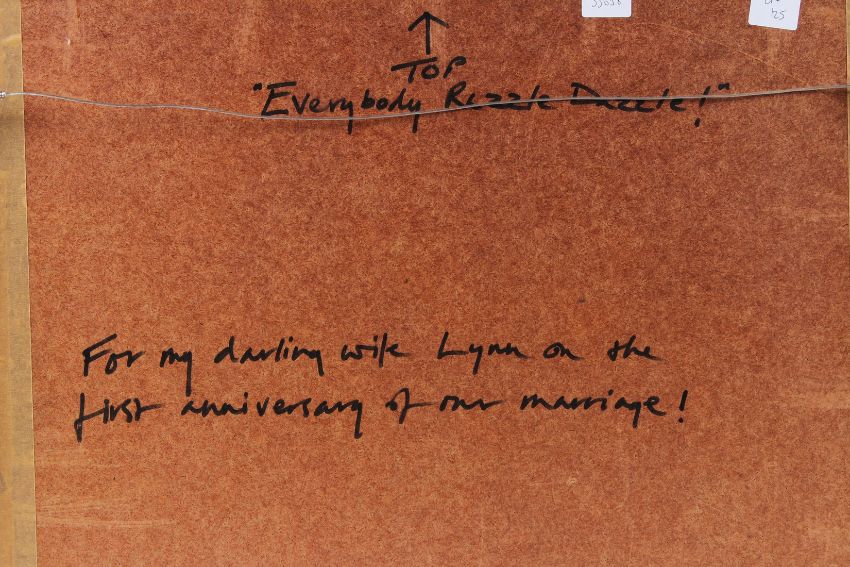 TOP
"Everybody Razzle Dazzle!"
For my darling wife Lynn on the
first anniversary of our marriage!